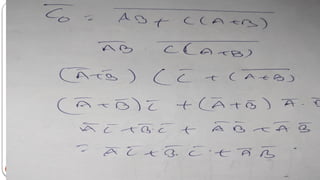 C̅₀ = \overline{AB + C(A+B)}
\overline{AB} \overline{C(A+B)}
(A̅+B̅) (C̅ + (\overline{A+B})
(A̅+B̅)C̅ + (A̅+B̅) A̅.
A̅C̅+B̅C̅ + A̅B̅+A̅B̅
= A̅C̅+B̅.C̅+A̅B̅.